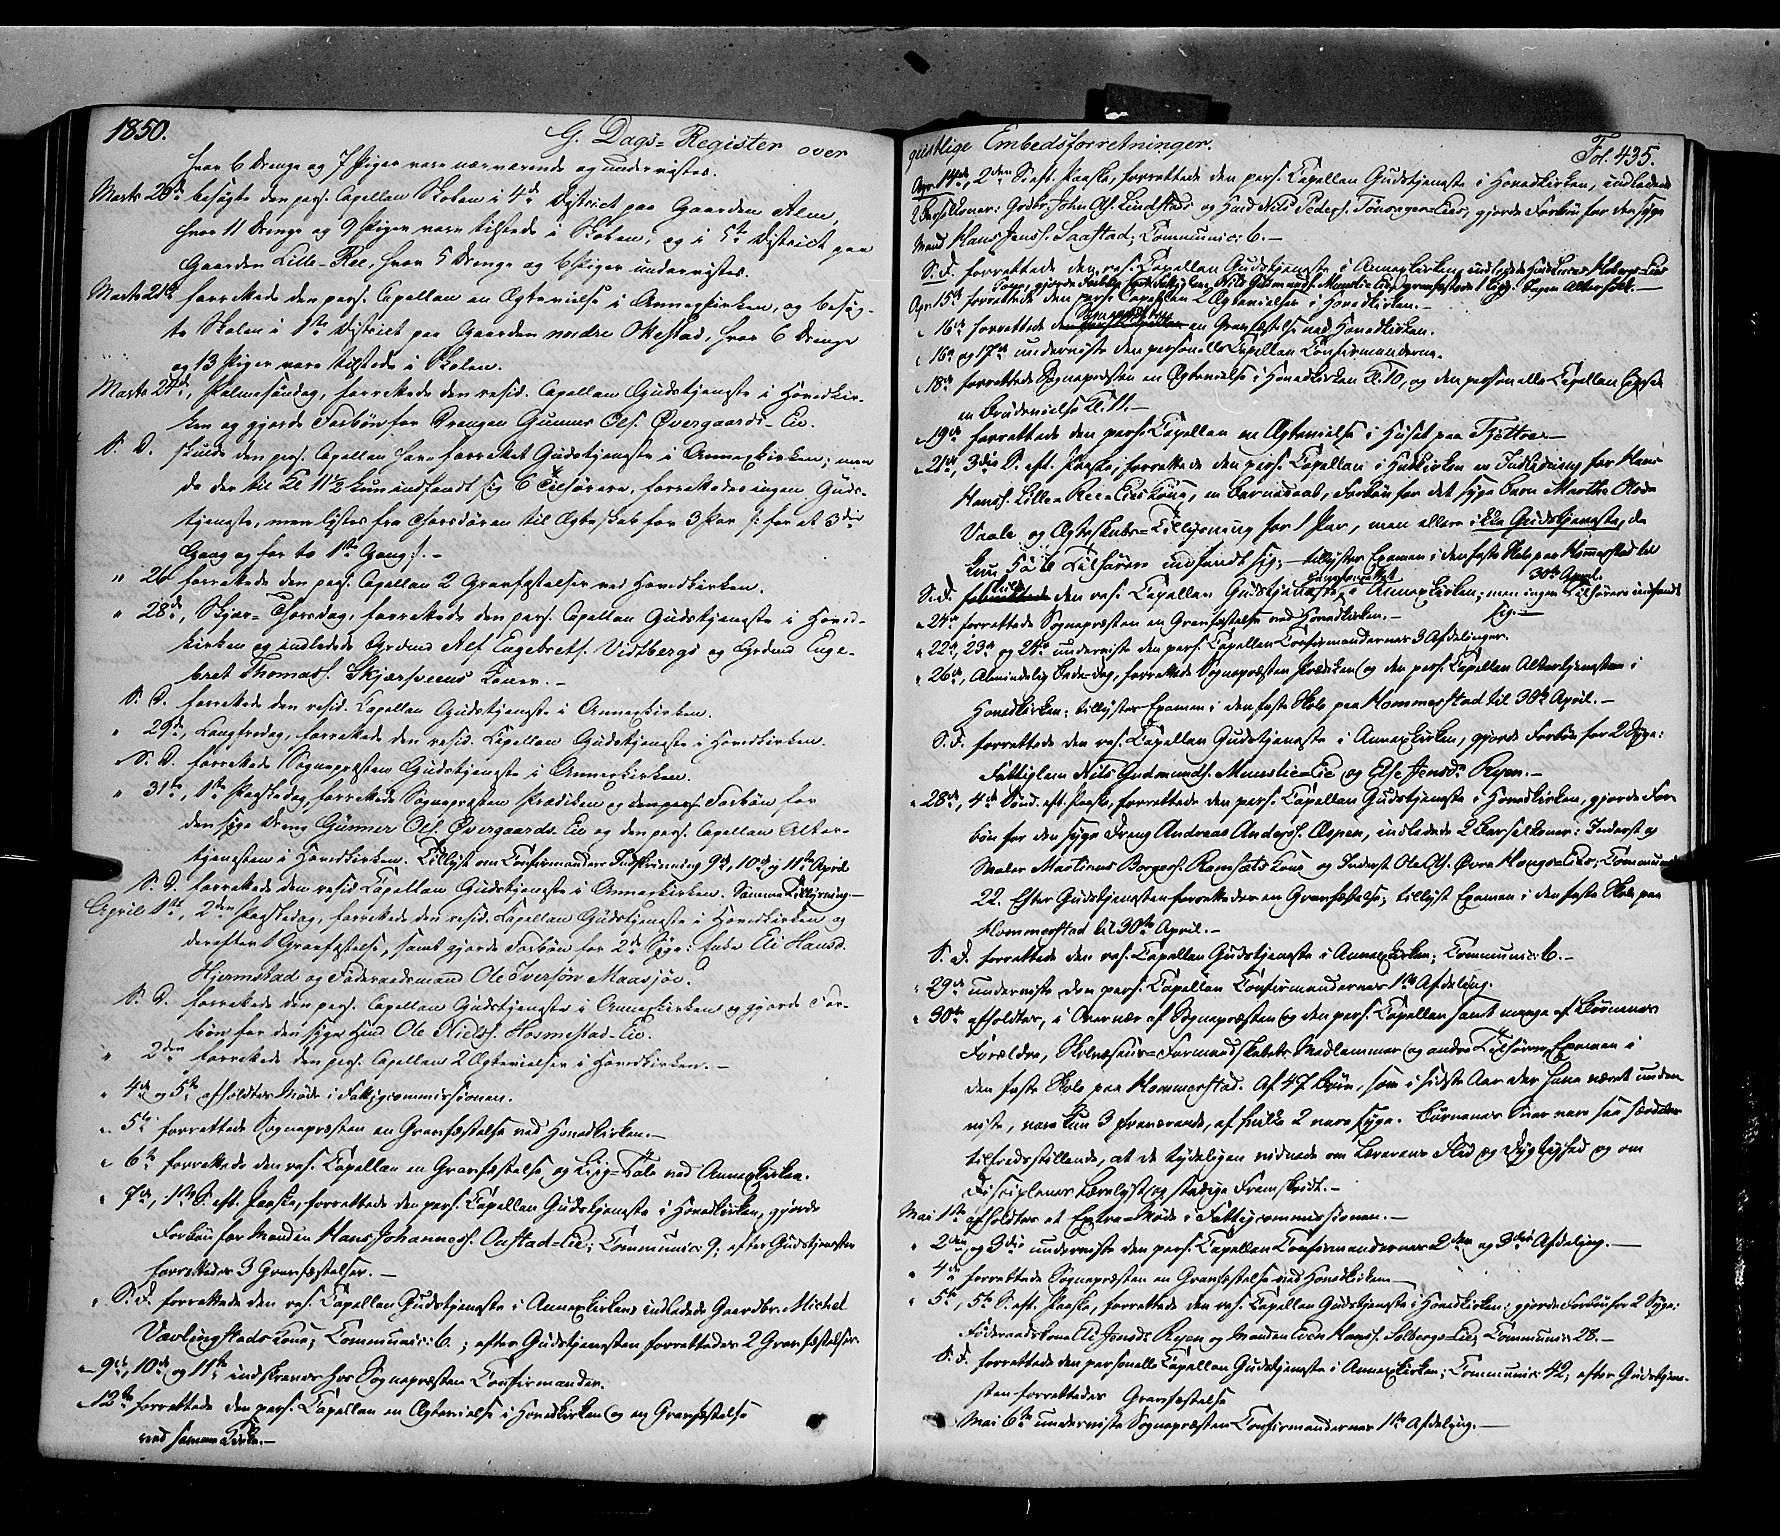 1850.
G. Dags-Register over
hvor 6 Drenge og 7 Piger vare nærværende og underviistes.
Marts 20de besøgte den pers. Capellan Skolen i 4de District paa Gaarden Alm,
hvor 11 Drenge og 9 Piger vare tilstede i Skolen; og i 5te District paa
Gaarden Lille-Ree, hvor 5 Drenge og 6 Piger underviistes.
Marts 21de forrettede den pers. Capellan en Ægtevielse i Annexkirken, og besøg-
te Skolen i 1ste District paa Gaarden nordre Okestad, hvor 6 Drenge
og 13 Piger vare tilstede i Skolen.
Marts 24de, Palmesøndag, forrettede den resid. Capellan Gudstjeneste i Hovedkir-
ken og gjorde Forbøn for Drengen Gunner Ols. Øvergaards-Eie.
S. D. skulde den pers. Capellan have forrettet Gudstjeneste i Annexkirken; men
da der til Kl 11½ kun indfandt sig 6 Tilhørere, forrettedes ingen Guds-
tjeneste, men lystes fra Chorsdøren til Ægteskab for 3 Par /: for et 3die
Gang og for to 1ste Gang :/. -
" 26 forrettede den pers. Capellan 2 Gravfæstelser ved Hovedkirken.
" 28de, Skjær-Thorsdag, forrettede den pers. Capellan Gudstjeneste i Hoved-
kirken og indledede Grdmd Alf Engebrets. Vidtbergs og Grdmd Enge-
bret Thomass. Skjærsveens Koner. -
S. D. forrettede den resid. Capellan Gudstjeneste i Annexkirken.
" 29de, Langfredag, forrettede den resid. Capellan Gudstjeneste i Hovedkirken.
S. D. forrettede Sognepræsten Gudstjeneste i Annexkirken.
" 31te, 1ste Paaskedag, forrettede Sognepræsten Prædiken og den pers. Forbøn for
den syge Dreng Gunner Ols. Øvergaards Eie og den pers. Capellan Alter-
tjenesten i Hovedkirken. Tillyst om Confirmanders Indskrivning 9de, 10de og 11te April
S. D. forrettede den resid. Capellan Gudstjeneste i Annexkirken. Samme Tillysning -
April 1ste, 2den Paaskedag, forrettede den resid. Capellan Gudstjeneste i Hovedkirken og
derefter 1 Gravfæstelse, samt gjorde Forbøn for 2de Syge: Enke Eli Hansd.
Hjermstad og Føderaadsmand Ole Iversøn Maasjør.
S. D. forrettede den pers. Capellan Gudstjeneste i Annexkirken og gjorde For-
bøn for den syge Hmd Ole Nielss. Hosmestad-Eie.
" 2den forrettede den pers. Capellan 2 Ægtevielser i Hovedkirken. -
" 4de og 5te afholdtes Møde i Fattigcommissionen.
" 5te forrettede Sognepræsten en Gravfæstelse ved Hovedkirken. -
" 6te forrettede den res. Capellan en Gravfæstelse og Liig-Tale ved Annexkirken.
" 7de, 1ste S. eft. Paaske, forrettede den pers. Capellan Gudstjeneste i Hovedkirken, gjorde
Forbøn for Manden Hans Johanness. Onstad-Eie; Communic: 9; efter Gudstjenesten
forrettedes 3 Gravfæstelser. -
" S. D. forrettede den res. Capellan Gudstjeneste i Annexkirken, indledede Gaardbr. Michel
Vævlingstads Kone; Communic: 6.; efter Gudstjenesten forrettedes 2 Gravfæstelser.
" 9de, 10de og 11te indskreves hos Sognepræsten Confirmander.
" 12te forrettede den pers. Capellan en Ægtevielse i Hovedkirken og en Gravfæstelse
ved samme Kirke. -
geistlige Embedsforretninger.
Fol. 435.
Apr. 14de, 2den S. eft. Paaske, forrettede den pers. Capellan Gudstjeneste i Hovedkirken, indledede
2 Barselkoner: Grdbr. John Ols. Lindstads og Husmd Nils Peders. Tønsager-Eies, gjorde Forbøn for den syge
Mand Hans Jenss. Saastad; Communic: 6. -
S. D. forrettede den res. Capellan Gudstjeneste i Annexkirken, indledede Huusmand Solbergs-Eies
Kone, gjorde Forbøn for Fattiglem Nils Gudmunds. Munslie Eie, gravfæstede 1 Liig. Ingen Altergang. -
Apr. 15de forrettede den pers. Capellan 2 Ægtevielser i Hovedkirken.
Sognepræsten
" 16de forrettede den pers. Capellan en Gravfæstelse ved Hovedkirken.
" 16de og 17de underviste den personelle Capellan Confirmanderne.
" 18de forrettede Sognepræsten en Ægtevielse i Hovedkirken Kl. 10, og den personelle Capellan sammesteds
en Brudevielse Kl. 11. -
" 19de forrettede den pers. Capellan en Ægtevielse i Huset paa Tjøttre. -
" 21de, 3die S. eft. Paaske, forrettede den pers. Capellan i Hvdkirken en Indledning for Hans
Hanss. Lille-Ree-Eies Kone, en Barnedaab, Forbøn for det syge Barn Marthe Olsdr
Vaale, og Ægteskabs-Tillysning for 1 Par, men ellers ikke Gudstjeneste, da
kun 5 à 6 Tilhørere indfandt sig; - tillystes Examen i den faste Skole paa Hommerstad til
30te April.
S. D. skulde den res. Capellan Gudstjeneste have forrettet i Annexkirken; men ingen Tilhørere indfandt
sig. -
" 24de forrettede Sognepræsten en Gravfæstelse ved Hovedkirken. -
" 22de, 23de og 24de underviste den pers. Capellan Confirmandernes 3 Afdelinger.
" 26de, Almindelig Bede-dag, forrettede Sognepræsten Prædiken og den pers. Capellan Altertjenesten i
Hovedkirken; tillystes Examen i den faste Skole paa Hommerstad til 30te April. -
S. D. forrettede den res. Capellan Gudstjeneste i Annexkirken, gjorde Forbøn for 2 Syge:
Fattiglem Nils Gudmunds. Munslie-Eie og Else Jensdr. Ryen. -
" 28de, 4de Sønd. eft. Paaske, forrettede den pers. Capellan Gudstjeneste i Hovedkirken, gjorde For-
bøn for den syge Dreng Andreas Anderss. Ospen, indledede 2 Barselkoner: Inderst og
Maler Martinus Borgers. Ramstads Kone og Inderst Ole Ols. Øvre Haugs-Eies; Communic:
22. Efter Gudstjenesten forrettedes en Gravfæstelse; tillyst Examen i den faste Skole paa
Hommerstad til 30te April. -
S. D. forrettede den res. Capellan Gudstjeneste i Annexkirken; Communic: 6. -
" 29de underviste den pers. Capellan Confirmandernes 1ste Afdeling.
" 30te afholdtes, i Overvær af Sognepræsten og den pers. Capellan samt mange af Børnenes
Forældre, Skolevæsens-Formandskabets Medlemmer og andre Tilhørere Examen i
den faste Skole paa Hommerstad. Af 47 Børn, som i sidste Aar der have været under-
viste, vare kun 3 fraværende, af hvilke 2 vare syge. Børnenes Svar vare saa særdeles
tilfredsstillende, at de tydeligen vidnede om Lærerens Flid og Dygtighed og om
Disciplenes Lærelyst og stadige Fremskridt. -
Mai 1ste afholdtes et Extra-Møde i Fattigcommissionen. -
" 2den og 3die underviste den pers. Capellan Confirmandernes 2den og 3die Afdeling. -
" 4de forrettede Sognepræsten en Gravfæstelse ved Hovedkirken -
" 5te, 5te S. eft. Paaske, forrettede den res. Capellan Gudstjeneste i Hovedkirken; gjorde Forbøn for 2 Syge:
Føderaadskone Eli Jensdr. Ryen og Manden Even Hanss. Solbergs-Eie; Communic: 28. -
S. D. forrettede den personelle Capellan Gudstjeneste i Annexkirken; Communic: 42; efter Gudstjene-
sten forrettedes Gravfæstelse
Mai 6te underviste Sognepræsten Confirmandernes 1ste Afdeling. -